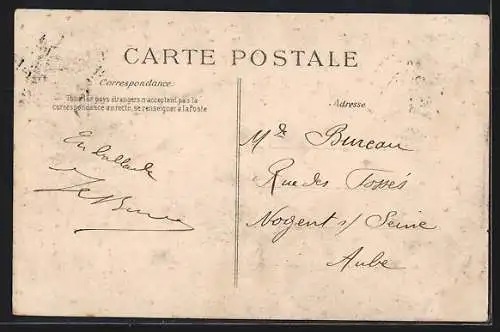 CARTE POSTALE
Correspondance
Tous les pays étrangers n'acceptent pas la
correspondance au recto, se renseigner à la Poste
Adresse
Mde Bureau
Rue des Fossés
Nogent s/ Seine
Aube
En